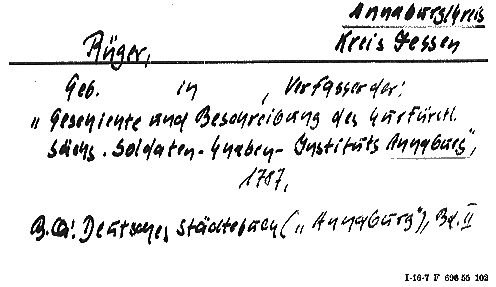 Annaburg/Kreis
Rüger, Kreis Jessen
Geb. in , Verfasser der:
"Geschichte und Beschreibung des Curfürstl.
Sächs. Soldaten-Knaben-Instituts Annaburg",
1787,
B.Qu: Deutsches Städtebuch ("Annaburg"), Bd. II
I-16-7 F 696 55 102